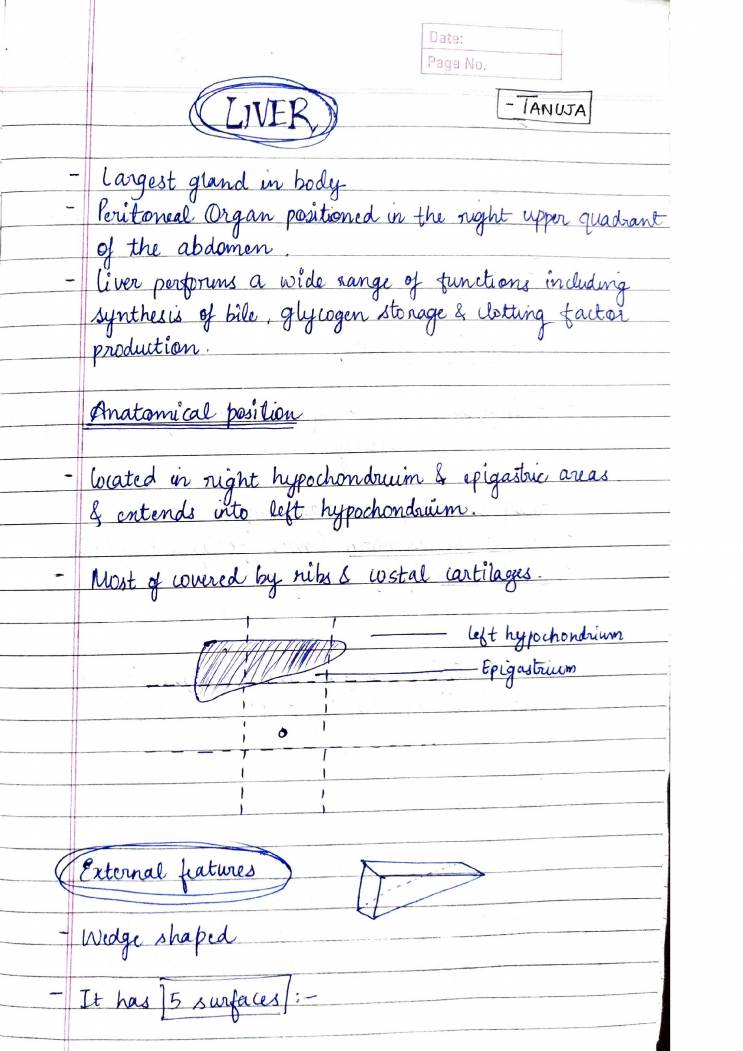 Date:
Page No.
LIVER
- TANUJA
- Largest gland in body
- Peritoneal Organ positioned in the right upper quadrant
of the abdomen.
- Liver performs a wide range of functions including
synthesis of bile, glycogen storage & clotting factor
production.
Anatomical position
- located in right hypochondruim & epigastric areas
& extends into left hypochondruim.
- Most of covered by ribs & costal cartilages.
left hypochondrium
Epigastrium
External features
- Wedge shaped
- It has 5 surfaces :-